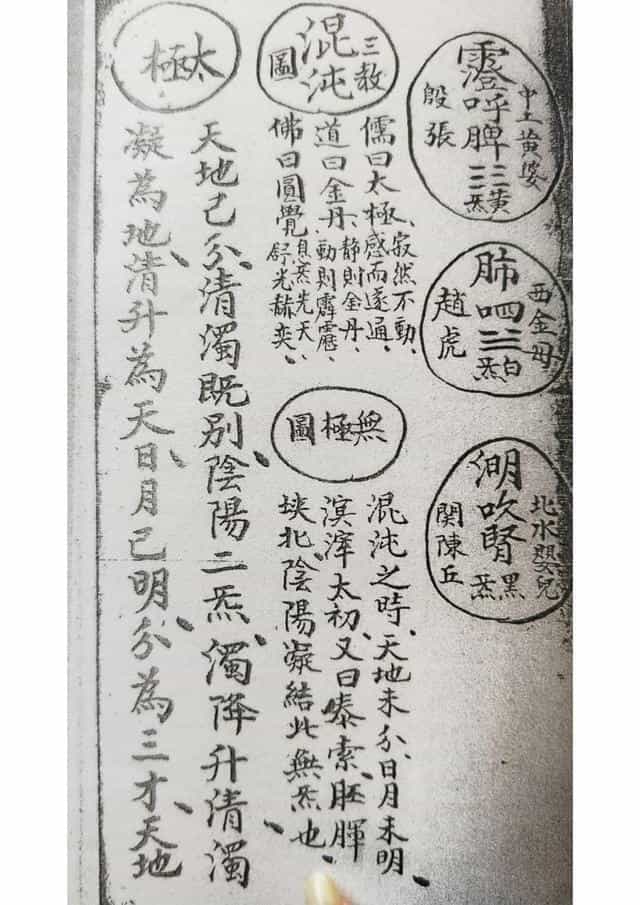 中土黄婆
呼脾黄炁
殷張
西金母
肺呬白炁
趙虎
北水嬰兒
吹腎黑炁
関陳丘
三教
混沌
圖
儒曰太極、寂然不動、感而遂通、
道曰金丹、静則金丹、動則霹靂、
佛曰圓覺、息炁先天、舒光赫奕、
無極圖
混沌之時、天地未分、日月未明、
溟滓太初、又曰泰素、胚腪
北、陰陽凝結此無炁也、
太極
天地已分、清濁既別、陰陽二炁、濁降升清濁
凝為地、清升為天、日月已明、分為三才、天地